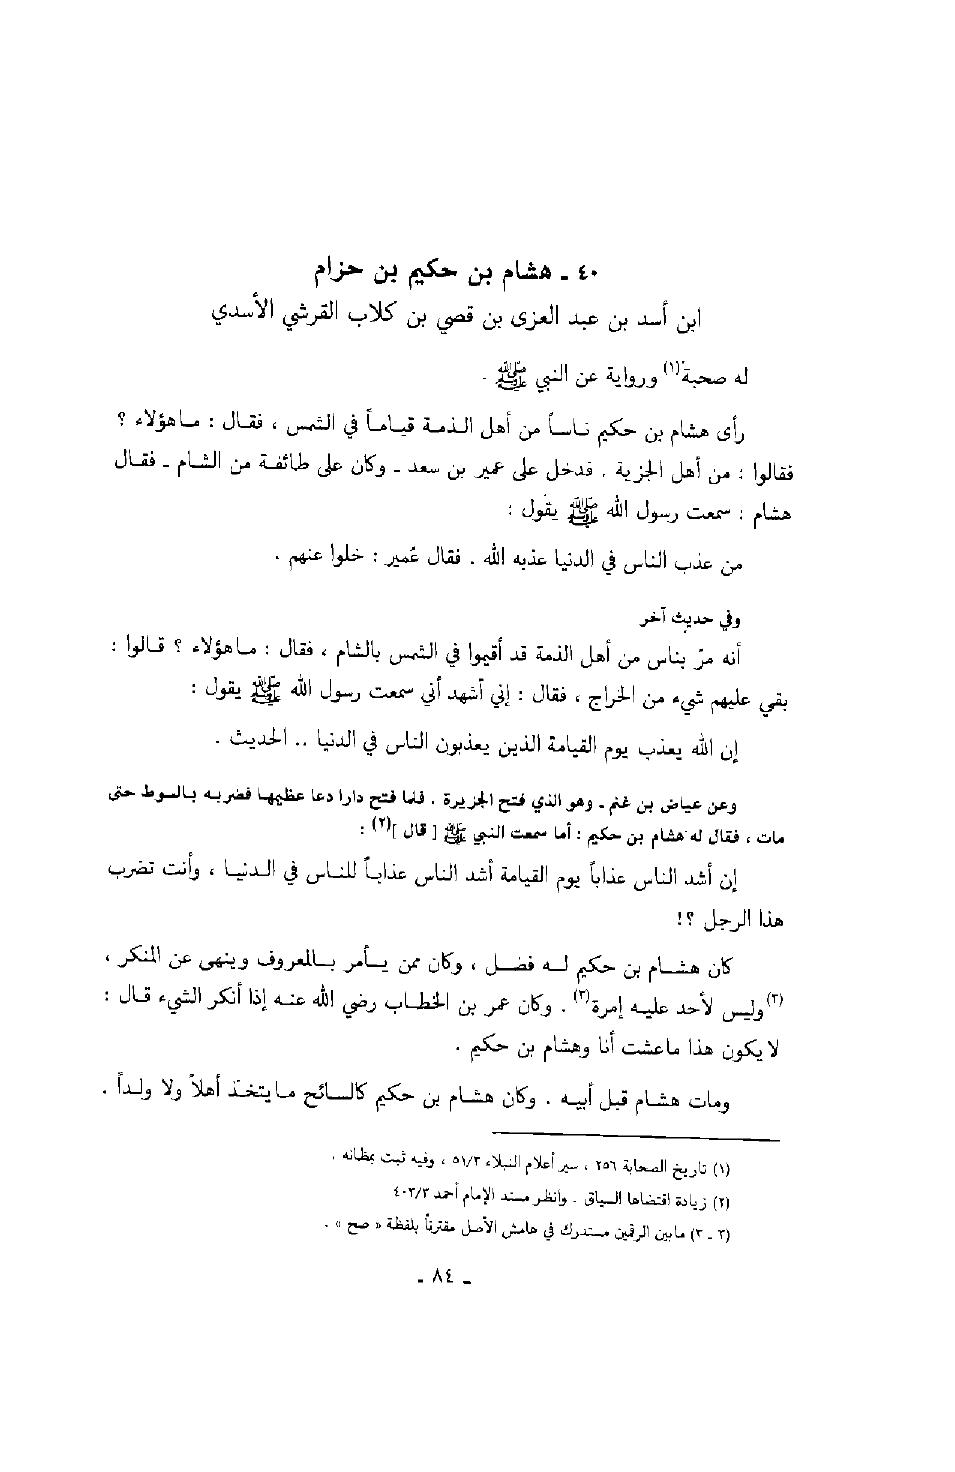 ٤٠ ـ هشام بن حكيم بن حزام
ابن أسد بن عبد العزى بن قصي بن كلاب القرشي الأسدي
له صحبة(١) ورواية عن النبي ﷺ .
رأى هشام بن حكيم ناساً من أهل الذمة قياماً في الشمس ، فقال : ماهؤلاء ؟
فقالوا : من أهل الجزية . فدخل على عمير بن سعد ـ وكان على طائفة من الشام ـ فقال
هشام : سمعت رسول الله ﷺ يقول :
من عذب الناس في الدنيا عذبه الله . فقال عُمير : خلوا عنهم .
وفي حديث آخر
أنه مرّ بناس من أهل الذمة قد أقيموا في الشمس بالشام ، فقال : ماهؤلاء ؟ قالوا :
بقي عليهم شيء من الخراج ، فقال : إني أشهد أني سمعت رسول الله ﷺ يقول :
إن الله يعذب يوم القيامة الذين يعذبون الناس في الدنيا .. الحديث .
وعن عياض بن غنم ـ وهو الذي فتح الجزيرة . فلما فتح دارا دعا عظيمها فضربه بالسوط حتى
مات ، فقال له هشام بن حكيم : أما سمعت النبي ﷺ [ قال ](٢) :
إن أشد الناس عذاباً يوم القيامة أشد الناس عذاباً للناس في الدنيا ، وأنت تضرب
هذا الرجل ؟!
كان هشام بن حكيم له فضل ، وكان ممن يأمر بالمعروف وينهى عن المنكر ،
(٣)وليس لأحد عليه إمرة(٣) . وكان عمر بن الخطاب رضي الله عنه إذا أنكر الشيء قال :
لا يكون هذا ماعشت أنا وهشام بن حكيم .
ومات هشام قبل أبيه . وكان هشام بن حكيم كالسائح مايتخذ أهلاً ولا ولداً .
(١) تاريخ الصحابة ٢٥٦ ، سير أعلام النبلاء ٥١/٣ ، وفيه ثبت بمظانه .
(٢) زيادة اقتضاها السياق . وانظر مسند الإمام أحمد ٤٠٣/٣
(٣ ـ ٣) مابين الرقمين مستدرك في هامش الأصل مقترناً بلفظة « صح » .
ـ ٨٤ ـ